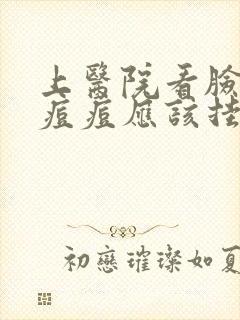 上醫院看臉
痘痘應該掛
初戀璀璨如夏